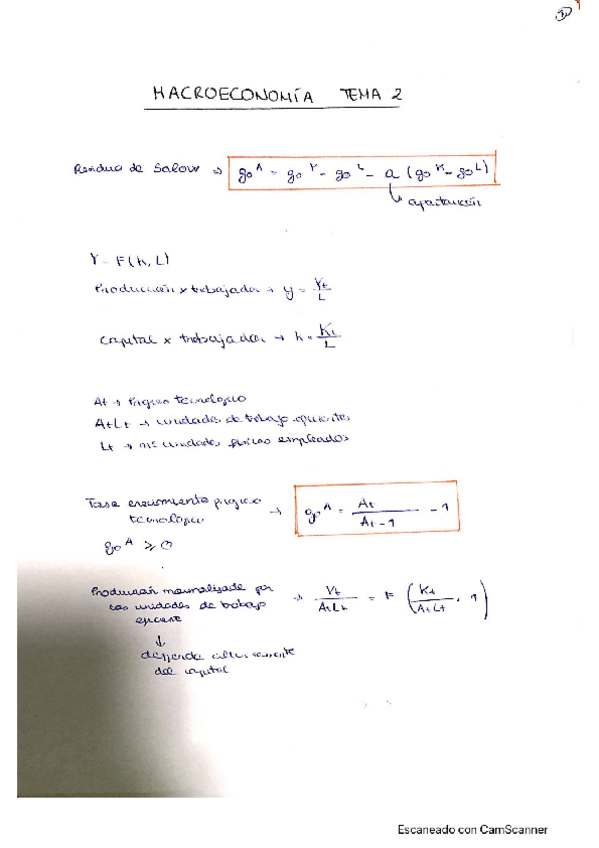 MACROECONOMÍA TEMA 2
Residuo de Solow → go^A = go^Y - go^L - a (go^K - go^L)
↳ aportación
Y = F(K, L)
Producción x trabajador → y = Yt / L
Capital x trabajador → k = Kt / L
At → Progreso tecnológico
AtLt → unidades de trabajo eficientes
Lt → nº unidades físicas empleados
Tasa crecimiento progreso
tecnológico → go^A = At / At-1 - 1
go^A ⩾ 0
Producción normalizada por
las unidades de trabajo
eficiente → Yt / AtLt = F (Kt / AtLt , 1)
↓
depende
del capital
Escaneado con CamScanner